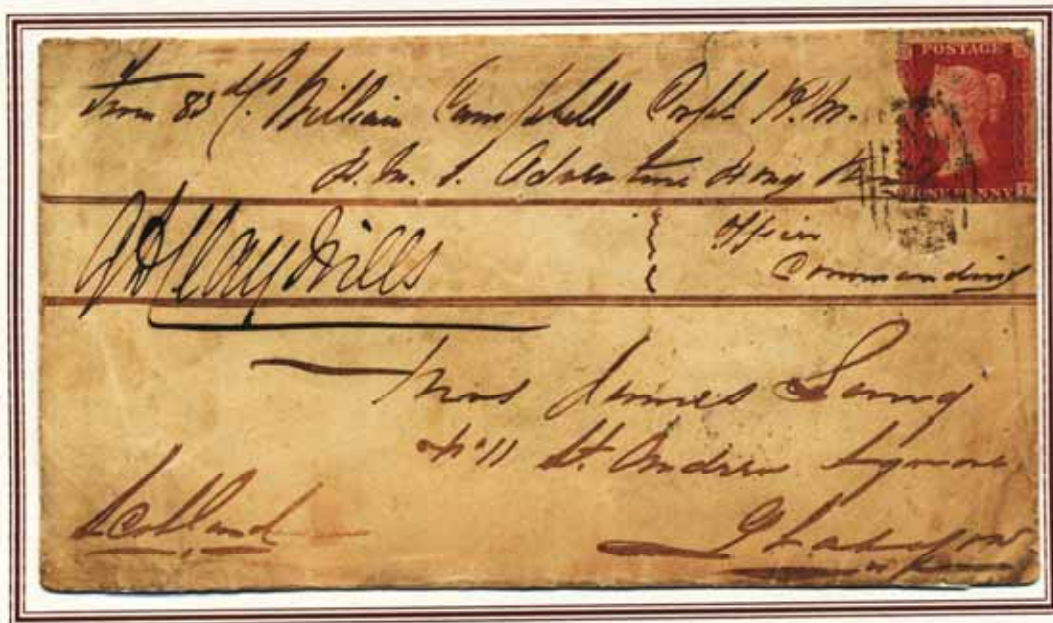 From 83 Co. William Campbell Corpl. R.M.
H.M.S. Adventure Hong
POSTAGE
ONE PENNY
Officer
Commanding
Mrs James
No 11 St. Andrew Square
Glasgow
Scotland